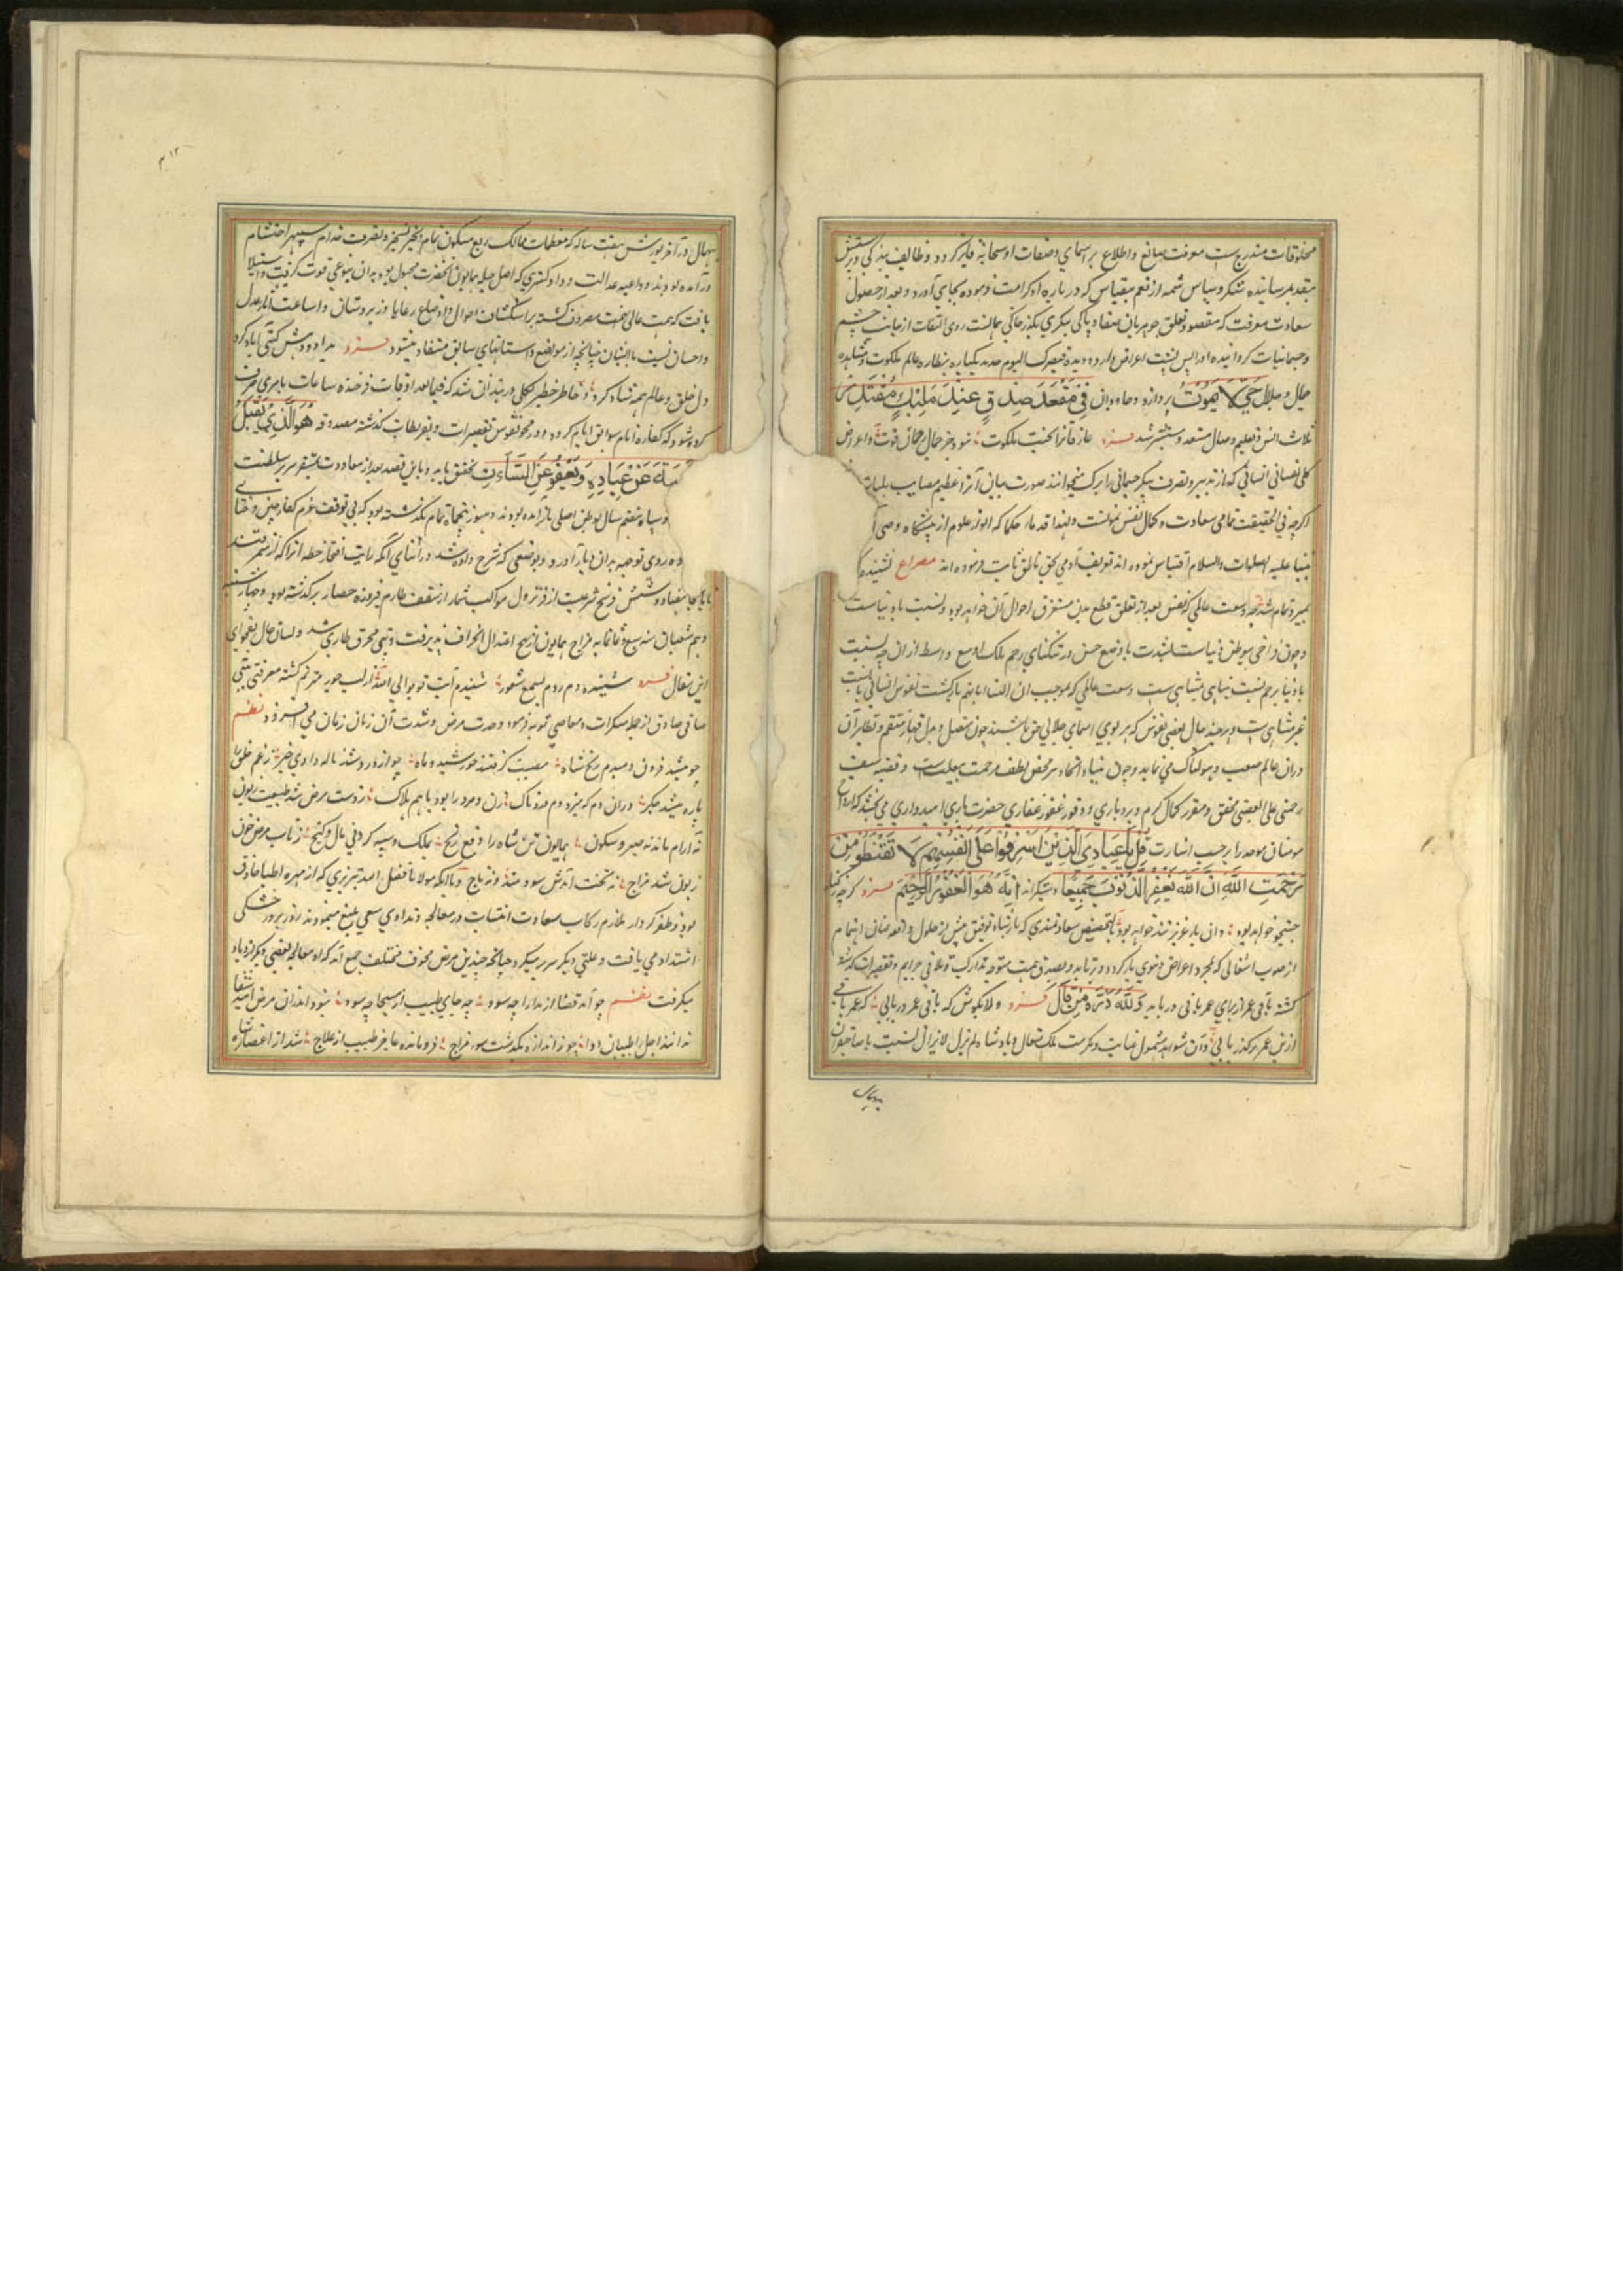 مخلوقات مندرج است معرفت صانع و اطلاع بر اسمای و صفات او سبحانه فایز کردد و وظایف بندکی و پرستش
بتقدیم رسانیده شکر و سپاس شمه از نعم بیقیاس که در باره او کرامت فرموده بجای آورد و بعد از حصول
سعادت معرفت که مقصود تعلق جوهر بآن صفا و پاکی بیکری بکذر خاکی همانست روی التفات از جانب جسم
و جسمانیات کردانیده او را پس پشت اعراض دارد و دیده فبصرک الیوم حدید یکباره بنظاره عالم ملکوت و مشاهده
جمال و جلال حَيٌّ لَا يَمُوتُ پردازد و جاودان فِي مَقْعَدِ صِدْقٍ عِنْدَ مَلِيكٍ مُقْتَدِرٍ
انس و تعلیم وصال مستعد و مستبشر شد
کلی نفسانی انسانی که از تدبیر و تصرف پیکر جسمانی را مرک میخوانند صورت بیان آنرا عظیم مصایب بلیات
اکرچه فی الحقیقت تمامی سعادت و کمال نفس بموتست و لهذا قدماء حکما که انوار علوم از پیشکاه وصی
انبیا علیه الصلوات والسلام اقتباس نموده اند تعریف آدمی بحی ناطق مایت فرموده اند مصراع نشنیده
بمیرد تمام شد وسعت عالمی که نفس بعد از تعلق قطع بدن مستغرق احوال آن خواهد بود و نسبت با دنیاست
و چون فراخی موطن دنیاست با وضع حسن در تنکنای رحم بلک اوسع و ابسط از ان چه نسبت
با دنیا برحم نسبت متناهی بمتناهی است وسعت عالمی که بموجب ان الینا ایابهم بازکشت نفوس انسانی بآنست
غیر متناهی است و هرچند حال بعضی نفوس که مربوب اسمای جلالی حق باشند چون مضل و مذل و قهار و منتقم و نظایر آن
دران عالم صعب و هولناک می نماید و چون بنیاد ایجاد بر محض لطف و مرحمت بیعلت است و قضیه سبقت
رحمتی علی غضبی محقق و مقرر کمال کرم و بردباری و وفور غفور غفاری حضرت باری امیدواری می بخشد که
مومنان موحد را بر حسب اشارت قُلْ يَا عِبَادِيَ الَّذِينَ أَسْرَفُوا عَلَى أَنْفُسِهِمْ لَا تَقْنَطُوا مِنْ
رَحْمَتِ اللَّهِ إِنَّ اللَّهَ يَغْفِرُ الذُّنُوبَ جَمِيعًا دستکیر اند إِنَّهُ هُوَ الْغَفُورُ الرَّحِيمُ فرد کرچه
جستجو خواهد بود وان یار عزیز تند خواهد بود بتخصیص سعادتمندی که بارتباه توفیق پیش از حلول واقعه عنان اهتمام
از صوب اشغالی که بمجرد اعراض دنیوی باز کردد و برتابد و بصدق همت متوجه تدارک و تلافی جرایم و تقصیرات
کشته باقی عمر از برای عمر باقی دریابد وَلِلَّهِ دَرُّ مَنْ قَالَ فرد ولا بکوش که باقی عمر دریابی که عمر باقی
ازین عمر برکذر یابی و آن شواهد شمول عنایت و مکرمت ملک متعال و پادشاه لم یزل و لا یزال نسبت با صاحبقران
بیهمال
۴۱۲
بیهمال در آخر یورش هفت ساله که معظمات ممالک ربع مسکون تمام بتسخیر و تصرف خدام سپهر احتشام
درآمده بودند و داعیه عدالت و دادکستری که اصل جبله همایون آنحضرت مجبول بود بدان بنوعی قوت کرفت و استیلا
یافت که همت عالی نهمت مصروف کشته بر استکشاف احوال و اوضاع رعایا و زیردستان و اشاعت آثار عدل
و احسان نسبت با ایشان چنانچه از مواضع داستانهای سابق مستفاد میشود فرد بداد و دهش کیتی آباد کرد
دل خلق و عالم همه شاد کرد و خاطر خطیر بکلی در بند آن شد که فیما بعد اوقات فرخنده ساعات بامری صرف
کرده شود که کفاره آثام سوابق ایام کردد و در محو نقوش تقصیرات و تفریطات کذشته معدود هُوَ الَّذِي يَقْبَلُ
التَّوْبَةَ عَنْ عِبَادِهِ وَيَعْفُو عَنِ السَّيِّئَاتِ تحقق یابد و باین قصد بعد از معاودت بمستقر سریر سلطنت
و سپاه هفتم سال بوطن اصلی بازآمده بودند و هنوز پنجماه تمام نکذشته بود که بی توقف عزم کفار چین و ختای
روی توجه بدان دیار آورد و بوضعی که شرح داده شد در اثنای آنکه رایت افتخار خطه انرا که از سمرقند
تا بانجا هفتاد و شش فرسخ شرعیست از فر نزول مواکب شمار از سقف طارم فیروزه حصار برکذشته بود و چهارشنبه
دهم شعبان سنه سبع و ثمانمایه مزاج همایون از نهج اعتدال انحراف پذیرفت و تبی محرق طاری شد و لسان حال بفحوای
این مقال فرد شنیده دم زدم بسمع شعور شنیدم آیت توبوا الی الله از لب حور مترنم کشته معرفتی بنیتی
صافی صادق از جمله منکرات و معاصی توبه فرمود و حدت مرض و شدت آن زمان زمان می افزود نظم
چو میشد فزون دمبدم رنج شاه مصیبت کرفتند خورشید و ماه چو آوازه در شد بناله دادی خبر ز غم خلق را
پاره میشد جکر دران دم که میزد دم دردناک زن و مرد را بود باهم هلاک ز دست مرض شد طبیعت زبون
نه آرام ماندند صبر و سکون همایون تن شاه را وقع رنج بملک و سپه کردنی مال و کنج ز تاب مرض چون
زبون شد مزاج نه تخت آمدش سودمند و نه تاج و باآنکه مولانا فضل الله تبریزی که از مهره اطباء حاذق
بود و ظفرکردار ملازم رکاب سعادت انتساب در معالجه و تداوی سعی بلیغ مینمود روز بروز خستکی
اشتداد می یافت و علتی دیکر سر بر میکرد چنانچه چندین مرض مخوف مختلف جمع آمد که از معالجه بعضی دیکر ازدیاد
میکرفت نظم چو آمد قضا از مدارا چه سود چه جای طبیب از مسیحا چه سود نبود اندران مرض امید شفا
نداند اجل را طبیبان دوا چو ز اندازه بکذشت سوء مزاج فرو مانده عاجز طبیب از علاج شد از اعضا